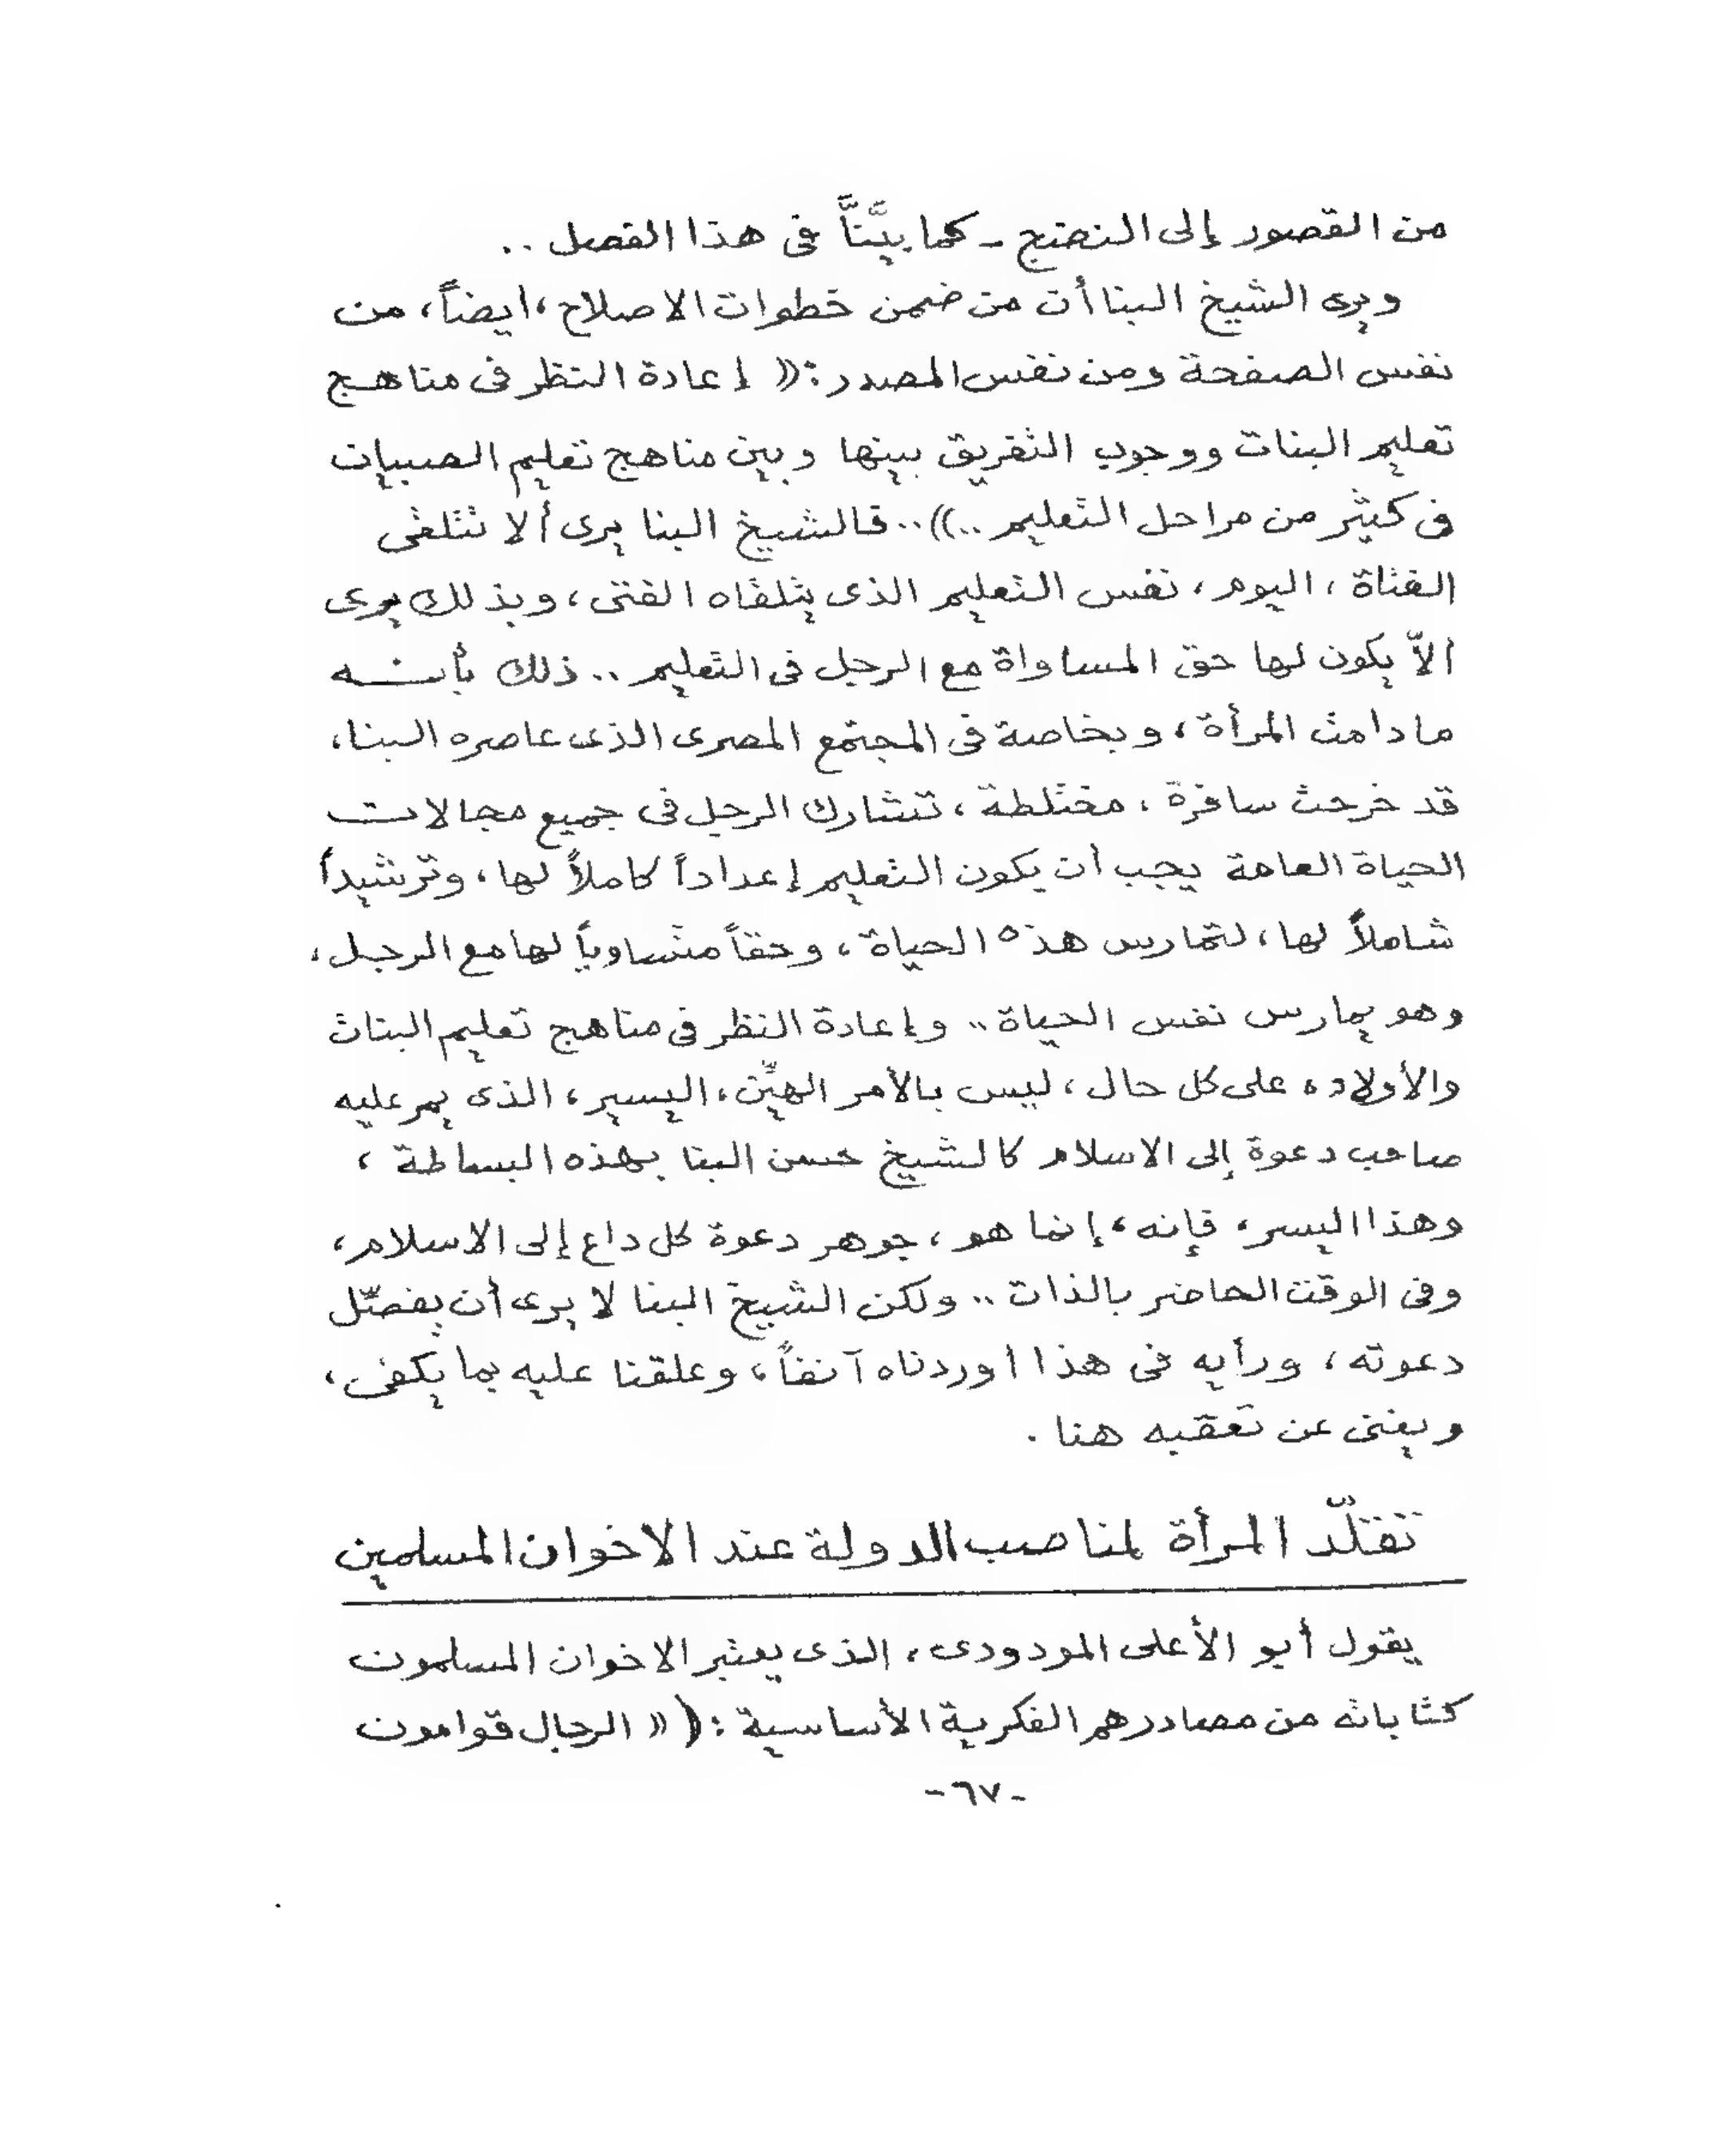 من القصور إلى النضج - كما بيَّنَّا في هذا الفصل ..
ويرى الشيخ البنا أن من ضمن خطوات الاصلاح ، ايضاً ، من
نفس الصفحة ومن نفس المصدر : (( إعادة النظر فى مناهج
تعليم البنات ووجوب التفريق بينها وبين مناهج تعليم الصبيان
فى كثير من مراحل التعليم ..)) .. فالشيخ البنا يرى ألا تتلقى
الفتاة ، اليوم ، نفس التعليم الذى يتلقاه الفتى ، وبذلك يرى
ألاّ يكون لها حق المساواة مع الرجل فى التعليم .. ذلك بأنه
ما دامت المرأة ، وبخاصة فى المجتمع المصرى الذى عاصره البنا ،
قد خرجت سافرة ، مختلطة ، تشارك الرجل فى جميع مجالات
الحياة العامة يجب أن يكون التعليم إعداداً كاملاً لها ، وترشيداً
شاملاً لها ، لتمارس هذه الحياة ، وحقاً متساوياً لها مع الرجل ،
وهو يمارس نفس الحياة .. وإعادة النظر فى مناهج تعليم البنات
والأولاد ، على كل حال ، ليس بالأمر الهيِّن ، اليسير ، الذى يمر عليه
صاحب دعوة إلى الاسلام كالشيخ حسن البنا بهذه البساطة ،
وهذا اليسر ، فإنه ، إنما هو ، جوهر دعوة كل داع إلى الاسلام ،
وفى الوقت الحاضر بالذات .. ولكن الشيخ البنا لا يرى أن يفصّل
دعوته ، ورأيه فى هذا اوردناه آنفاً ، وعلقنا عليه بما يكفى ،
ويغنى عن تعقبه هنا .
تقلّد المرأة لمناصب الدولة عند الاخوان المسلمين
يقول أبو الأعلى المودودى ، الذى يعتبر الاخوان المسلمون
كتاباته من مصادرهم الفكرية الأساسية : ( (( الرجال قوامون
- ٦٧ -